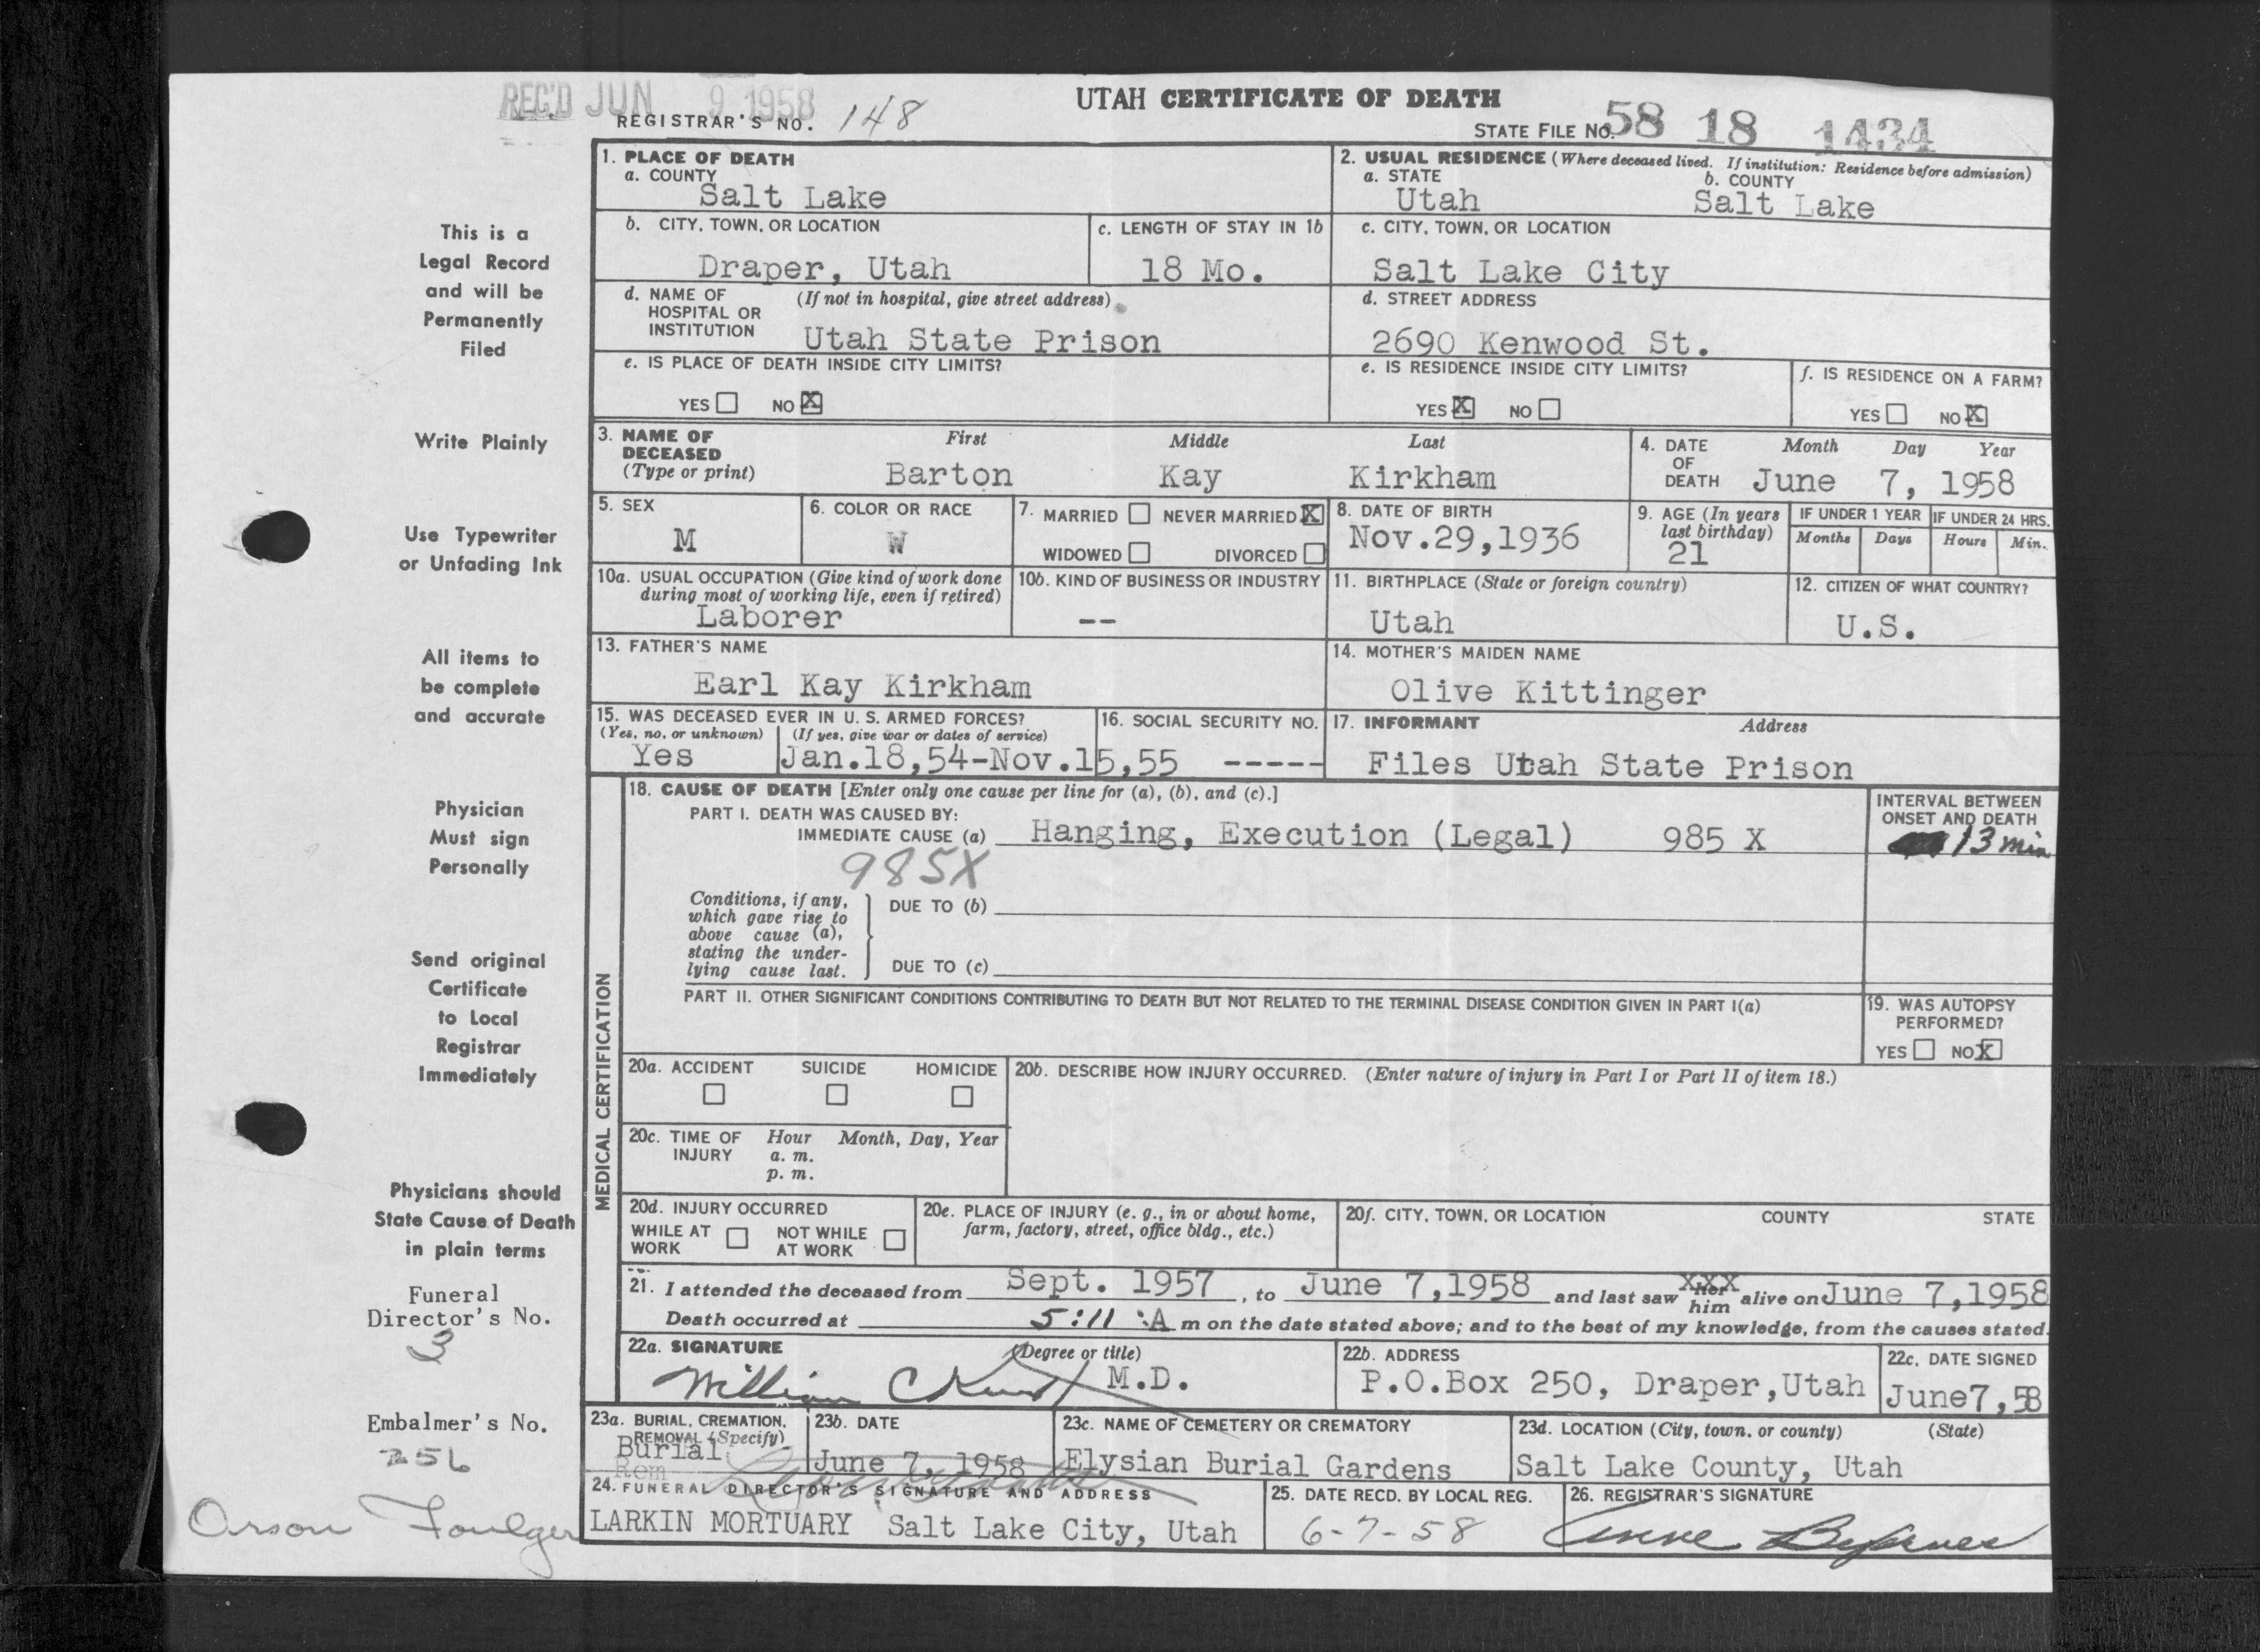 REC'D JUN 9 1958
UTAH CERTIFICATE OF DEATH
REGISTRAR'S NO. 148
STATE FILE NO. 58 18 1434
This is a
Legal Record
and will be
Permanently
Filed
Write Plainly
Use Typewriter
or Unfading Ink
All items to
be complete
and accurate
Physician
Must sign
Personally
Send original
Certificate
to Local
Registrar
Immediately
Physicians should
State Cause of Death
in plain terms
Funeral
Director's No.
3
Embalmer's No.
256
Orson Foulger
1. PLACE OF DEATH
a. COUNTY
Salt Lake
2. USUAL RESIDENCE (Where deceased lived. If institution: Residence before admission)
a. STATE b. COUNTY
Utah Salt Lake
b. CITY, TOWN, OR LOCATION
Draper, Utah
c. LENGTH OF STAY IN 1b
18 Mo.
c. CITY, TOWN, OR LOCATION
Salt Lake City
d. NAME OF (If not in hospital, give street address)
HOSPITAL OR
INSTITUTION Utah State Prison
d. STREET ADDRESS
2690 Kenwood St.
e. IS PLACE OF DEATH INSIDE CITY LIMITS?
YES NO X
e. IS RESIDENCE INSIDE CITY LIMITS?
YES X NO
f. IS RESIDENCE ON A FARM?
YES NO X
3. NAME OF First Middle Last
DECEASED
(Type or print) Barton Kay Kirkham
4. DATE Month Day Year
OF
DEATH June 7, 1958
5. SEX
M
6. COLOR OR RACE
W
7. MARRIED NEVER MARRIED X
WIDOWED DIVORCED
8. DATE OF BIRTH
Nov.29,1936
9. AGE (In years
last birthday)
21
IF UNDER 1 YEAR
Months Days
IF UNDER 24 HRS.
Hours Min.
10a. USUAL OCCUPATION (Give kind of work done
during most of working life, even if retired)
Laborer
10b. KIND OF BUSINESS OR INDUSTRY
--
11. BIRTHPLACE (State or foreign country)
Utah
12. CITIZEN OF WHAT COUNTRY?
U.S.
13. FATHER'S NAME
Earl Kay Kirkham
14. MOTHER'S MAIDEN NAME
Olive Kittinger
15. WAS DECEASED EVER IN U. S. ARMED FORCES?
(Yes, no, or unknown) (If yes, give war or dates of service)
Yes Jan.18,54-Nov.15,55
16. SOCIAL SECURITY NO.
-----
17. INFORMANT Address
Files Utah State Prison
MEDICAL CERTIFICATION
18. CAUSE OF DEATH [Enter only one cause per line for (a), (b), and (c).]
PART I. DEATH WAS CAUSED BY:
IMMEDIATE CAUSE (a) Hanging, Execution (Legal) 985 X
985X
INTERVAL BETWEEN
ONSET AND DEATH
13 min
Conditions, if any,
which gave rise to
above cause (a),
stating the under-
lying cause last.
DUE TO (b)
DUE TO (c)
PART II. OTHER SIGNIFICANT CONDITIONS CONTRIBUTING TO DEATH BUT NOT RELATED TO THE TERMINAL DISEASE CONDITION GIVEN IN PART I(a)
19. WAS AUTOPSY
PERFORMED?
YES NO X
20a. ACCIDENT SUICIDE HOMICIDE
20b. DESCRIBE HOW INJURY OCCURRED. (Enter nature of injury in Part I or Part II of item 18.)
20c. TIME OF Hour Month, Day, Year
INJURY a. m.
p. m.
20d. INJURY OCCURRED
WHILE AT WORK NOT WHILE AT WORK
20e. PLACE OF INJURY (e. g., in or about home,
farm, factory, street, office bldg., etc.)
20f. CITY, TOWN, OR LOCATION COUNTY STATE
21. I attended the deceased from Sept. 1957, to June 7,1958 and last saw her xxx him alive on June 7,1958
Death occurred at 5:11 :A m on the date stated above; and to the best of my knowledge, from the causes stated.
22a. SIGNATURE (Degree or title)
William C M.D.
22b. ADDRESS
P.O.Box 250, Draper,Utah
22c. DATE SIGNED
June7,58
23a. BURIAL, CREMATION,
REMOVAL (Specify)
Burial
Rem
23b. DATE
June 7, 1958
23c. NAME OF CEMETERY OR CREMATORY
Elysian Burial Gardens
23d. LOCATION (City, town, or county) (State)
Salt Lake County, Utah
24. FUNERAL DIRECTOR'S SIGNATURE AND ADDRESS
LARKIN MORTUARY Salt Lake City, Utah
25. DATE RECD. BY LOCAL REG.
6-7-58
26. REGISTRAR'S SIGNATURE
Anne